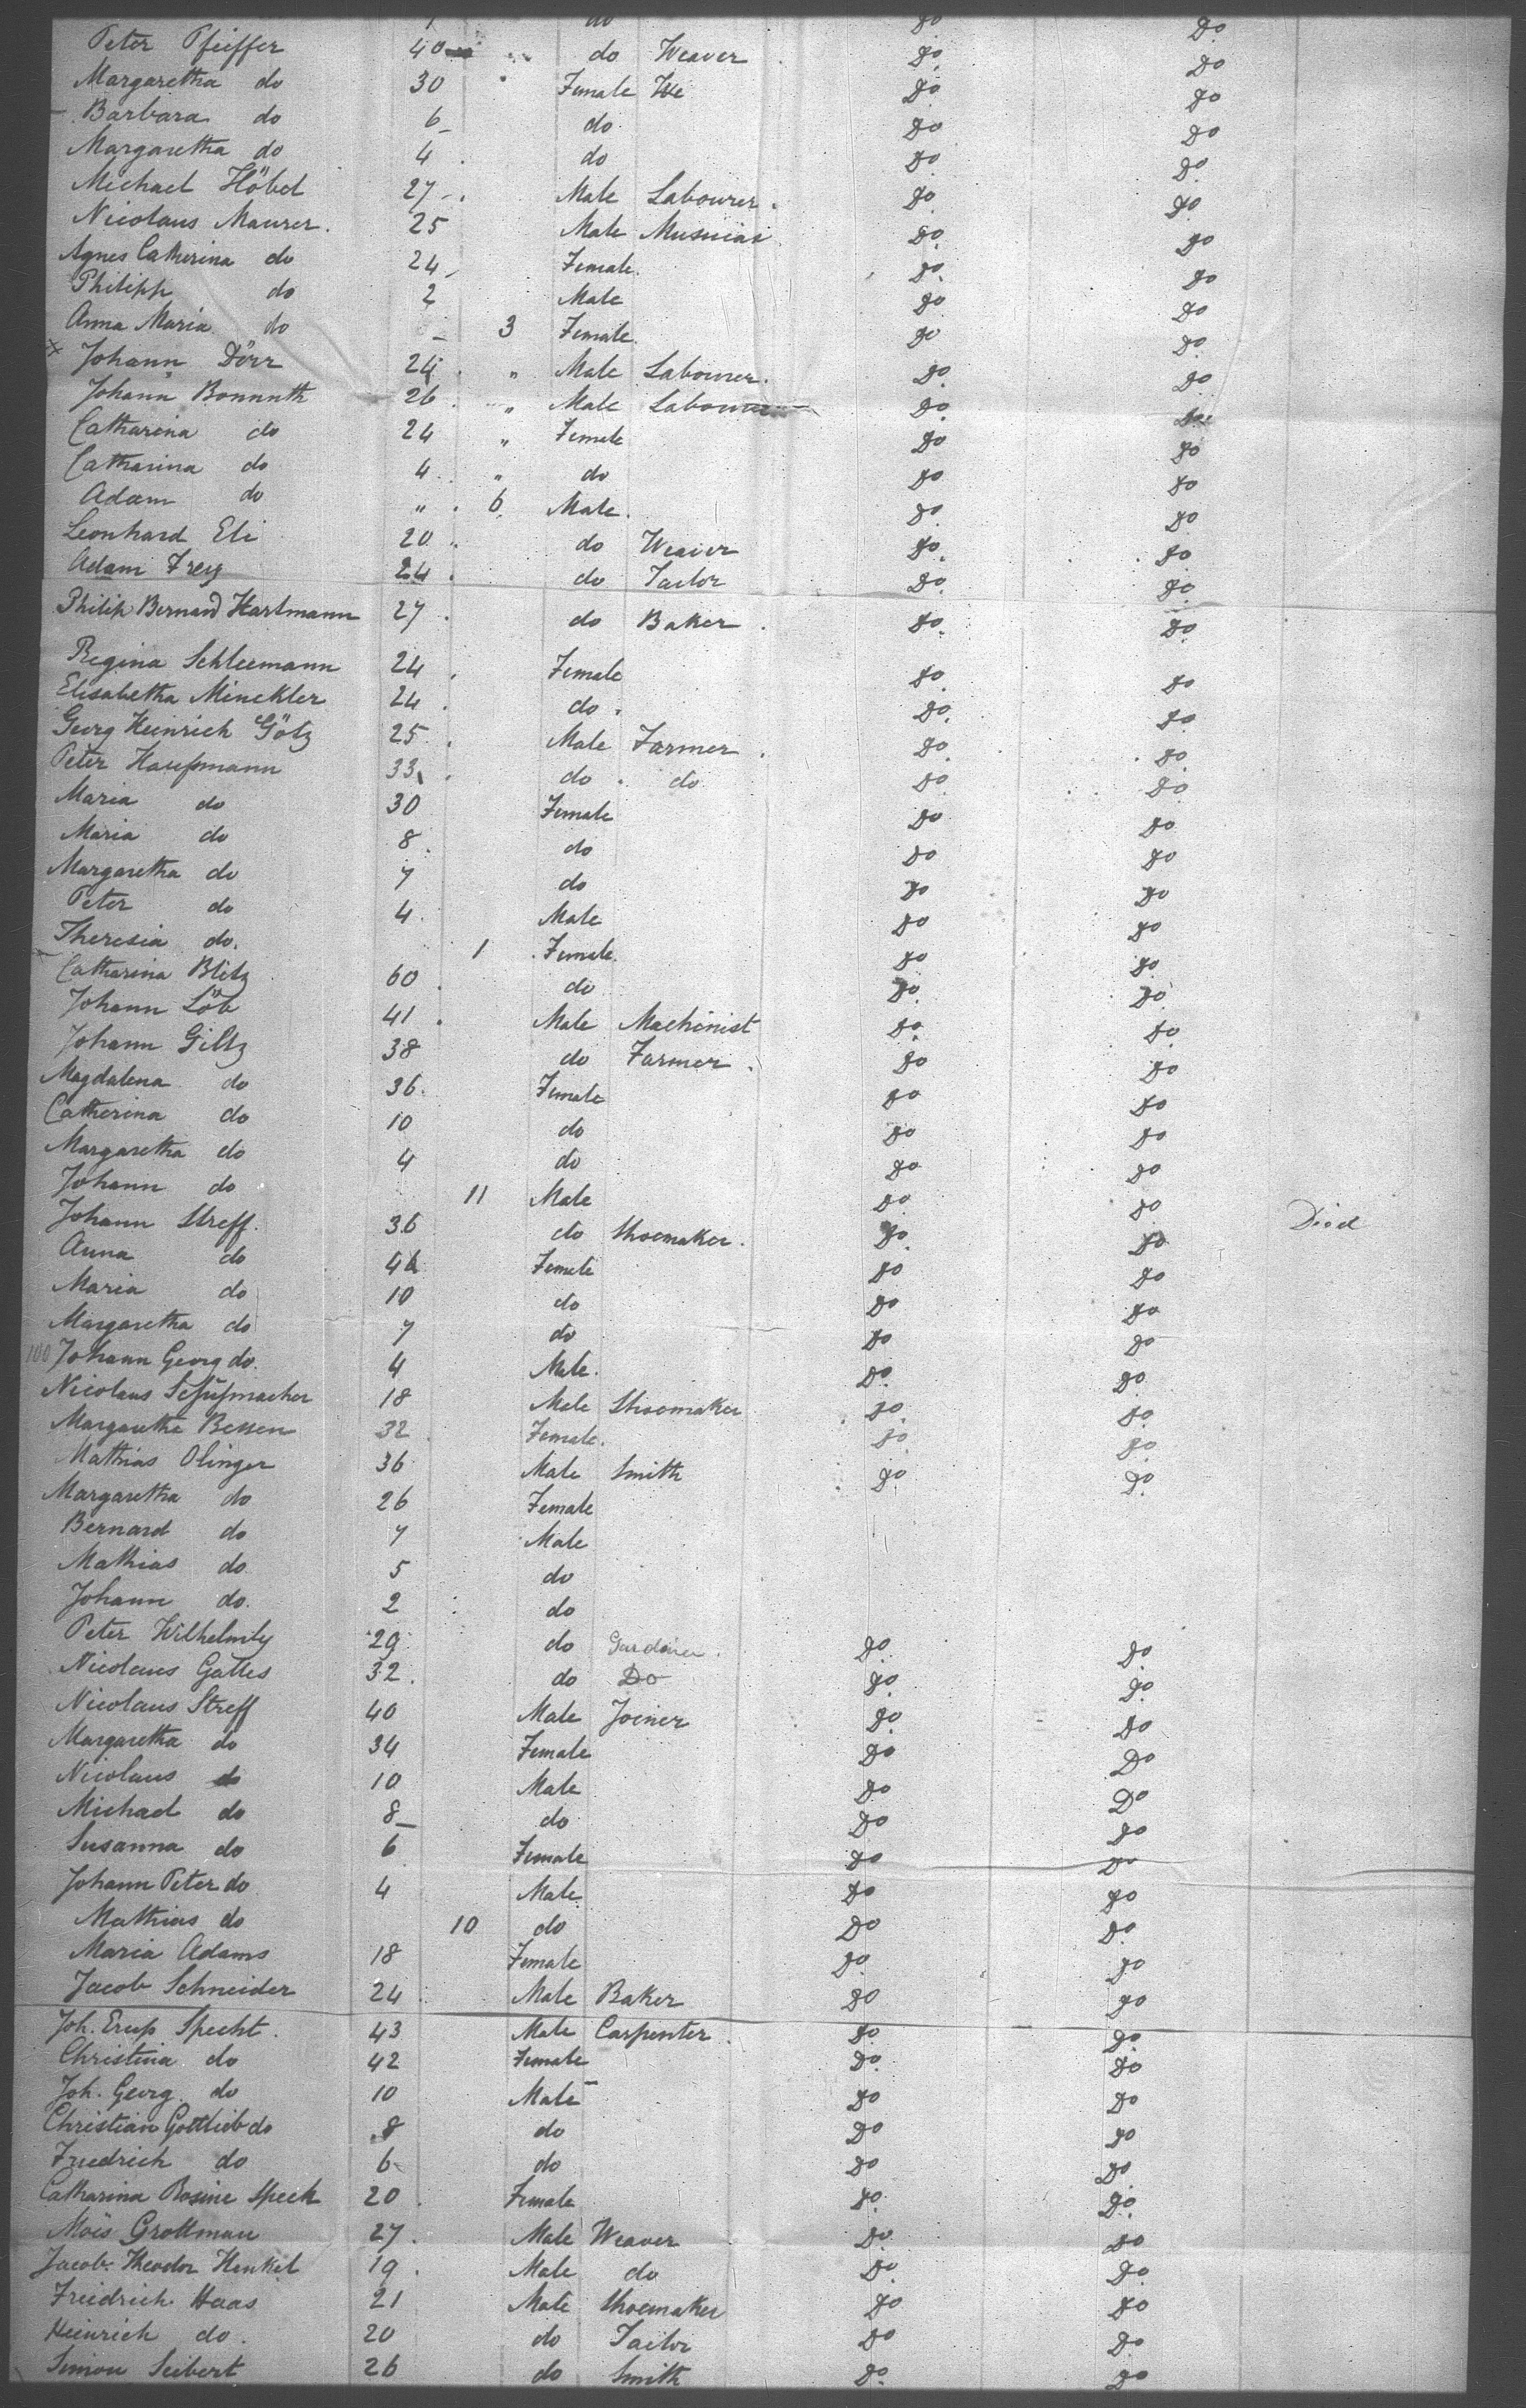 do do do
Peter Pfeiffer 40 do Weaver do do
Margaretha do 30 Female do do
Barbara do 6 do do do
Margaretha do 4 do do do
Michael Höbel 27 Male Labourer do do
Nicolaus Maurer 25 Male Musician do do
Agnes Catherina do 24 Female do do
Philipp do 2 Male do do
Anna Maria do - 3 Female do do
Johann Dörr 24 " Male Labourer do do
Johann Bonnuth 26 " Male Labourer do do
Catharina do 24 " Female do do
Catharina do 4 " do do do
Adam do " 6 Male do do
Leonhard Eli 20 do Weaver do do
Adam Frey 24 do Tailor do do
Philip Bernard Hartmann 27 do Baker do do
Regina Schleemann 24 Female do do
Elisabetha Minckler 24 do do do
Georg Heinrich Götz 25 Male Farmer do do
Peter Haußmann 33 do do do do
Maria do 30 Female do do
Maria do 8 do do do
Margaretha do 7 do do do
Peter do 4 Male do do
Theresia do. 1 Female do do
Catharina Blitz 60 do do do
Johann Löb 41 Male Machinist do do
Johann Giltz 38 do Farmer do do
Magdalena do 36 Female do do
Catherina do 10 do do do
Margaretha do 4 do do do
Johann do 11 Male do do Died
Johann Streff. 36 do Shoemaker. do do
Anna do Female do do
Maria do 10 do do do
Margaretha do 7 do do do
100 Johann Georg do. 4 Male. do do
Nicolaus Schußmacher 18 Male Shoemaker do do
Margaretha Bessen 32 Female. do do
Mathias Olinger 36 Male Smith do do
Margaretha do 26 Female
Bernard do 7 Male
Mathias do 5 do
Johann do. 2 do
Peter Wilhelmly 29 do Gardiner do do
Nicolaus Galles 32. do Do do do
Nicolaus Streff 40 Male Joiner do do
Margaretha do 34 Female do Do
Nicolaus do 10 Male do Do
Michael do 8 do do do
Susanna do 6 Female do do
Johann Peter do 4 Male do do
Mathias do 10 do do do
Maria Adams 18 Female do do
Jacob Schneider 24 Male Baker do do
Joh. Erup Specht. 43 Male Carpenter do do
Christina do 42 Female do do
Joh. Georg do 10 Male do do
Christian Gottlieb do 8 do do do
Friedrich do 6 do do do
Catharina Rosine Speck 20 Female do do
Mois Grollman 27. Male Weaver do do
Jacob Theodor Henkel 19. Male do do do
Friedrich Haas 21 Male Shoemaker do do
Heinrich do. 20 do Tailor do do
Simon Seibert 26 do Smith do do